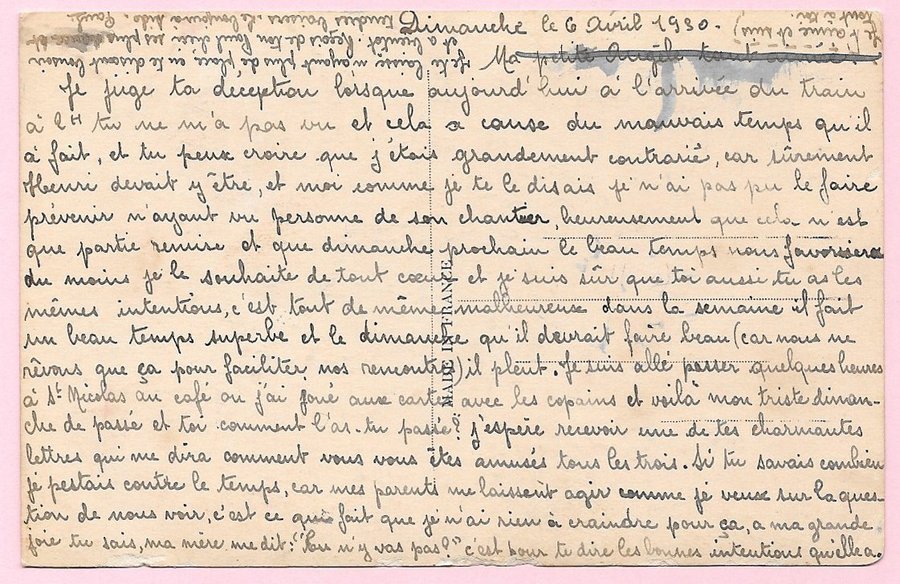 Dimanche le 6 Avril 1930.
Ma petite Angèle tant aimée
Je juge ta déception lorsque aujourd'hui à l'arrivée du train
à 2H tu ne m'a pas vu et cela a cause du mauvais temps qu'il
a fait, et tu peux croire que j'étais grandement contrarié, car sûrement
Henri devait y être, et moi comme je te le disais je n'ai pas pu le faire
prévenir n'ayant vu personne de son chantier, heureusement que cela n'est
que partie remise et que dimanche prochain le beau temps nous favorisera
du moins je le souhaite de tout cœur et je suis sûr que toi aussi tu as les
mêmes intentions, c'est tout de même malheureux dans la semaine il fait
un beau temps superbe et le dimanche qu'il devrait faire beau (car nous ne
rêvons que ça pour faciliter nos rencontres) il pleut. Je suis allé passer quelques heures
à St Nicolas au café ou j'ai joué aux cartes avec les copains et voilà mon triste diman-
che de passé et toi comment l'as-tu passé? j'espère recevoir une de tes charmantes
lettres qui me dira comment vous vous êtes amusés tous les trois. Si tu savais combien
je pestais contre le temps, car mes parents me laissent agir comme je veux sur la ques-
tion de nous voir, c'est ce qui fait que je n'ai rien à craindre pour ça, a ma grande
joie tu sais, ma mère me dit: "Tu n'y vas pas?" c'est pour te dire les bonnes intentions qu'elle a.
Je te laisse n'ayant plus de place en te disant bonsoir
et a bientôt. Reçois de ton Paul chéri ses plus
tendres baisers.
Je t'aime et suis
tout à toi.
MADE IN FRANCE